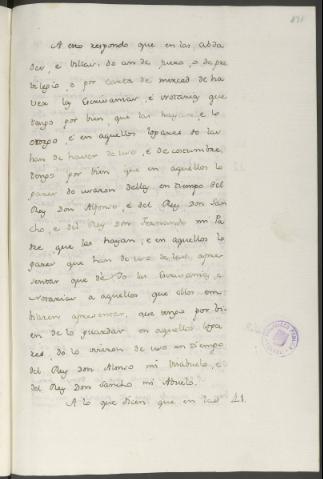 A esto respondo que en las abda
des, e Villas, do an de fuero, o de pre
vilegio, o por carta de merced de ha
ver las Escrivanias, e Notarias que
tengo por bien, que las hayan, e lo
otorgo, e en aquellos logares do las
han de haver de uso, e de costumbre,
tengo por bien que en aquellos lo
gares do usaron dellas en tiempo del
Rey Don Alfonso, e del Rey Don San
cho, e del Rey Don Fernando mi Pa
dre que las hayan, e en aquellos lo
gares que han de uso de las apre
sentar que de Yo las Escrivanias, e
Notarias a aquellos que ellos om
biaren apresentar, que tengo por bi
en de lo guardar en aquellos loga
res, do lo ovieron de uso en tiempo
del Rey Don Alonso mi Visabuelo, e
del Rey Don Sancho mi Abuelo.
A lo que dicen que en las 21.